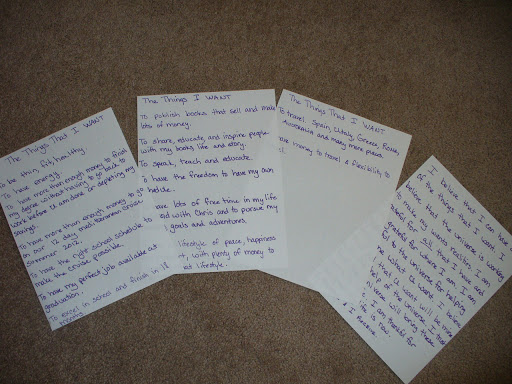 The Things That I WANT
To be thin, fit, healthy
To have energy.
have more than enough money to finish
my degree without having to go back to
work before I am done or depleting my
savings.
To have more than enough money to go
on our 12 day mediterranean cruise
Summer 2012.
To have the right school schedule to
make the cruise possible.
To have my perfect job available at
graduation.
To excel in school and finish in 18
months.
The Things I WANT
To publish books that sell and make
lots of money.
To share, educate, and inspire people
with my books, life and story.
To speak, teach and educate.
have the freedom to have my own
lots of free time in my life
with Chris and to pursue my
goals and adventures.
lifestyle of peace, happiness
with plenty of money to
lifestyle.
The Things That I WANT
To travel Spain, Italy, Greece,
Australia and many more places.
have money to travel & flexibility to
I believe that I can have all
of the things that I want. I
believe that the universe is working
to make my wants realities. I am
for all that I have and
for where I am. I am
to the universe for helping
what I want. I believe
that I want will be mine
help of the universe. I trust
universe will bring these
I am thankful for
life is now.
I receive.